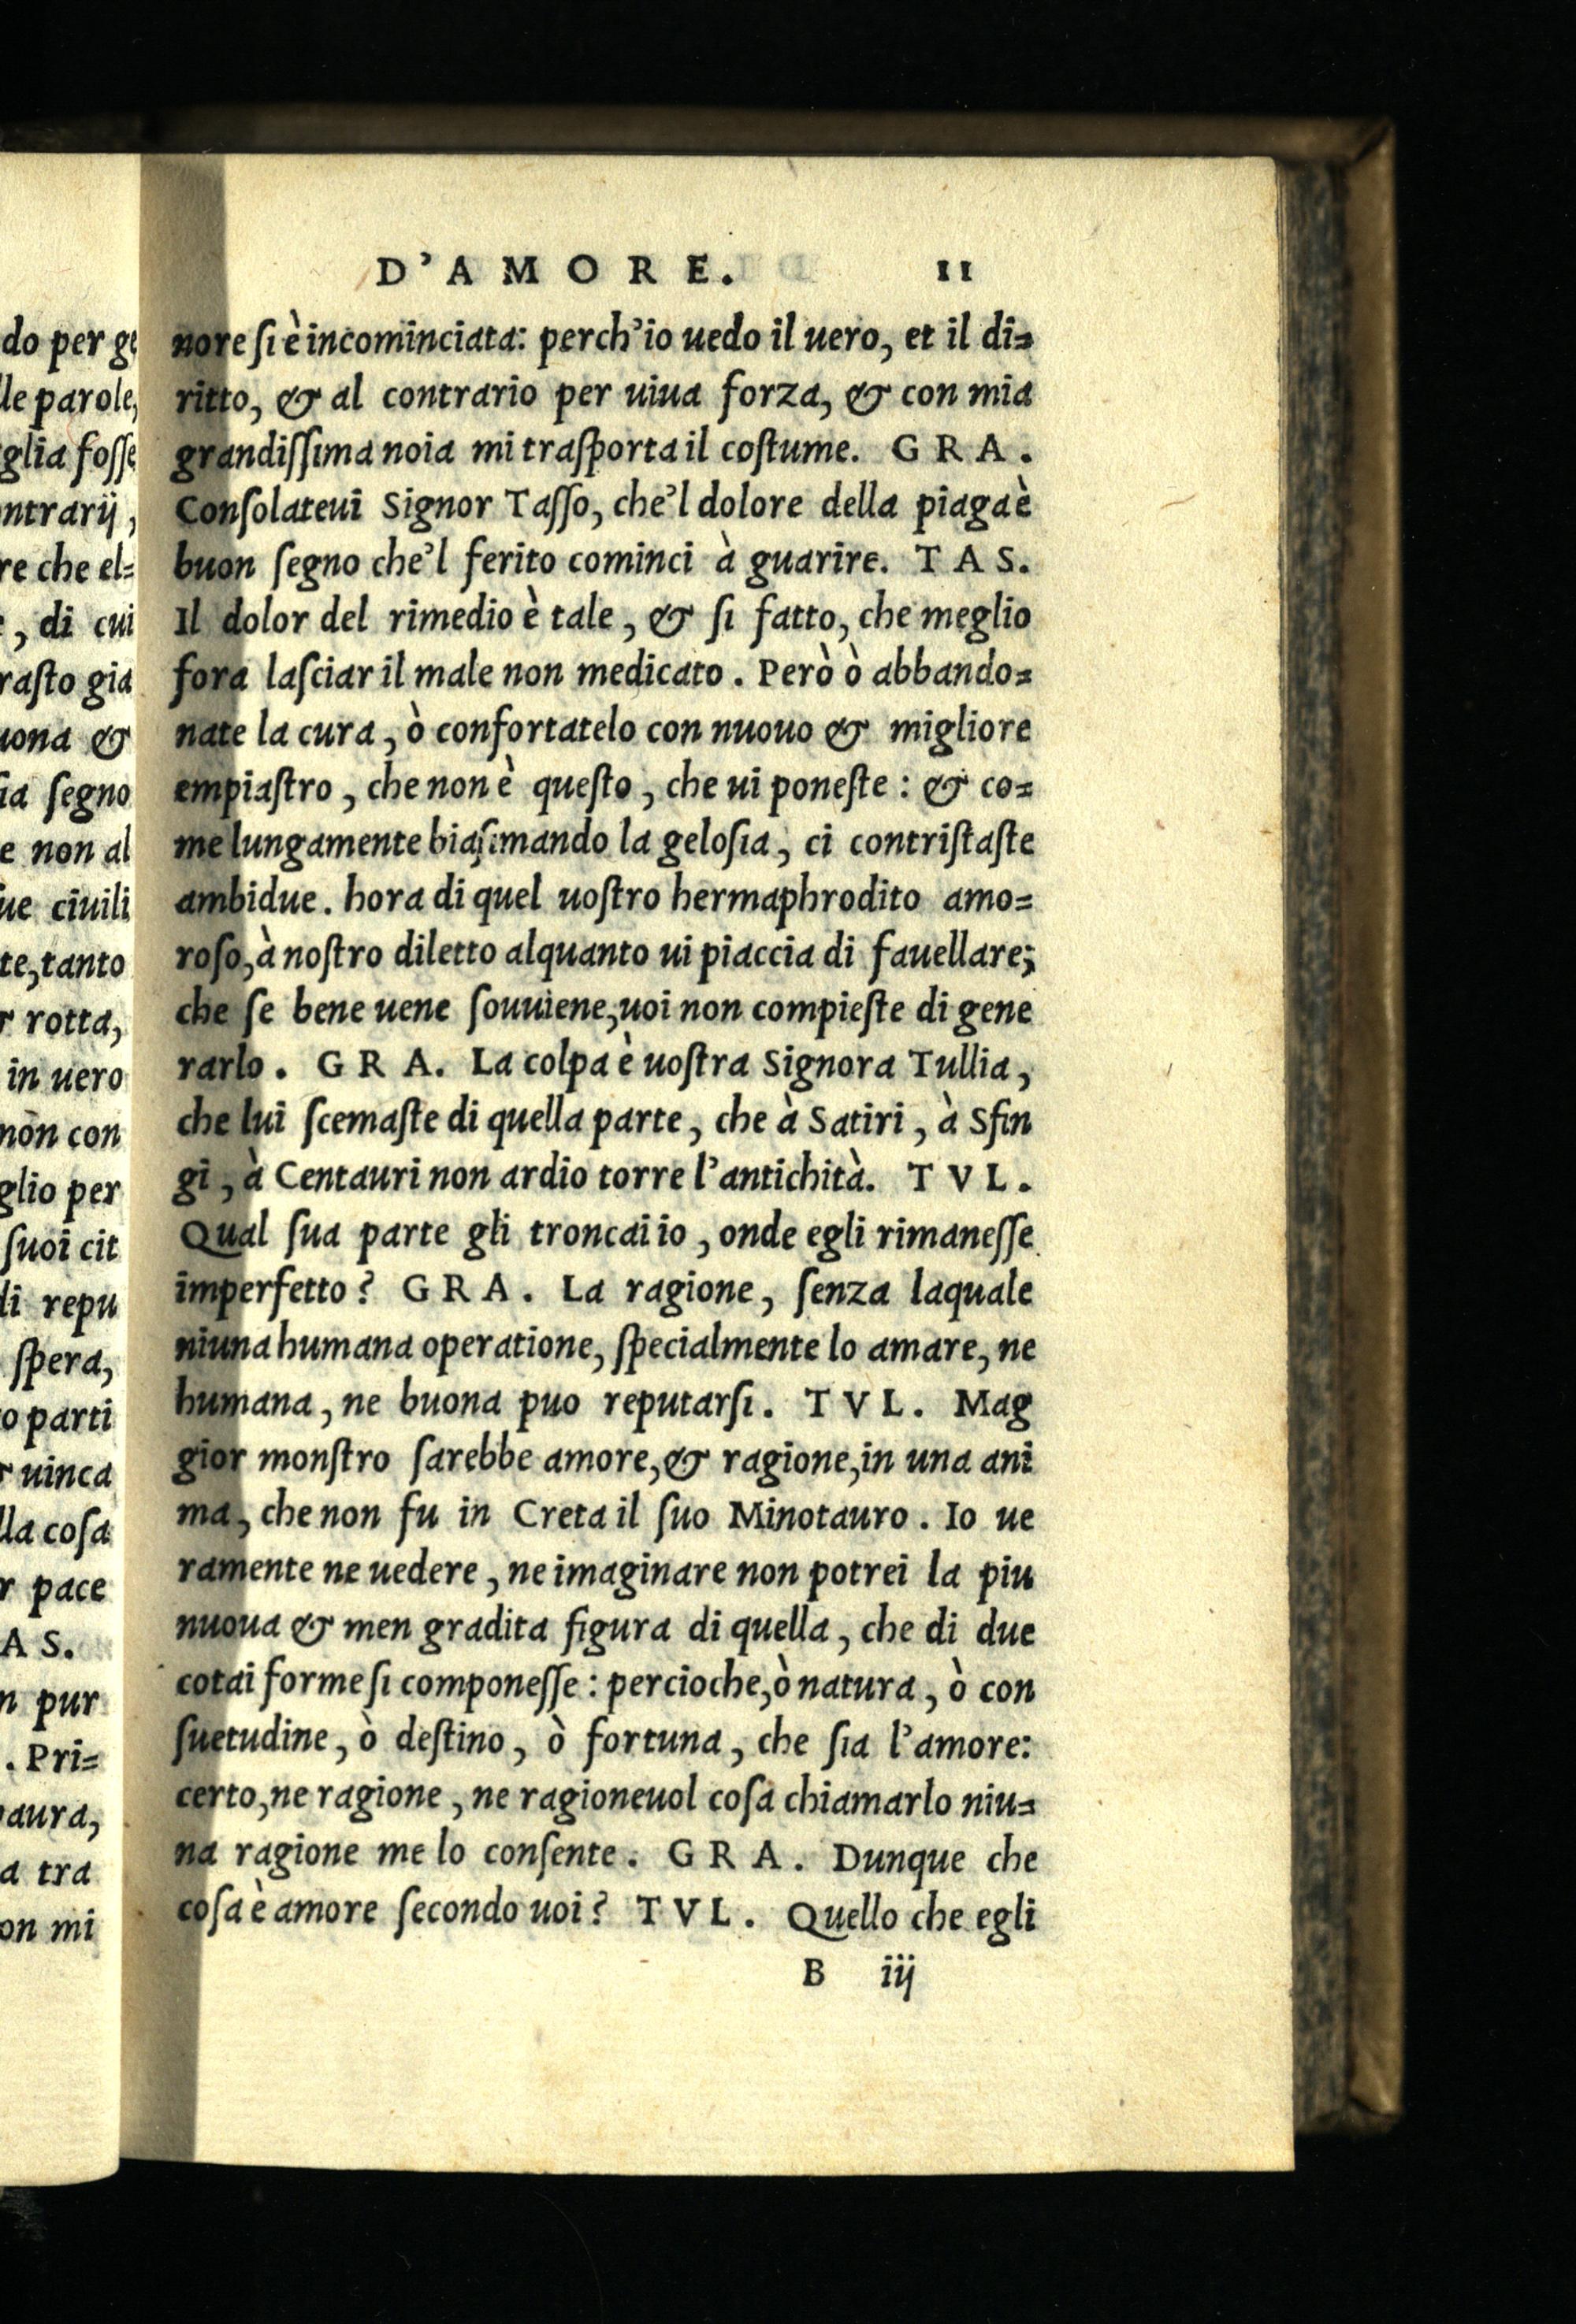 D'AMORE. 11
noreſi è incominciata: perch'io uedo il uero, et il di=
ritto, & al contrario per uiua forza, & con mia
grandiſſima noia mi traſporta il coſtume. GRA.
Conſolateui Signor Taſſo, che'l dolore della piaga è
buon ſegno che'l ferito cominci à guarire. TAS.
Il dolor del rimedio è tale, & ſi fatto, che meglio
fora laſciar il male non medicato. Però ò abbando=
nate la cura, ò confortatelo con nuouo & migliore
empiaſtro, che non è queſto, che ui poneſte: & co=
me lungamente biaſimando la geloſia, ci contriſtaſte
ambidue. hora di quel uoſtro hermaphrodito amo=
roſo, à noſtro diletto alquanto ui piaccia di fauellare;
che ſe bene uene ſouuiene, uoi non compieſte di gene
rarlo. GRA. La colpa è uoſtra Signora Tullia,
che lui ſcemaſte di quella parte, che à Satiri, à Sfin
gi, à Centauri non ardio torre l'antichità. TVL.
Qual ſua parte gli troncai io, onde egli rimaneſſe
imperfetto? GRA. La ragione, ſenza laquale
niuna humana operatione, ſpecialmente lo amare, ne
humana, ne buona puo reputarſi. TVL. Mag
gior monſtro ſarebbe amore, & ragione, in una ani
ma, che non fu in Creta il ſuo Minotauro. Io ue
ramente ne uedere, ne imaginare non potrei la piu
nuoua & men gradita figura di quella, che di due
cotai forme ſi componeſſe: percioche, ò natura, ò con
ſuetudine, ò deſtino, ò fortuna, che ſia l'amore:
certo, ne ragione, ne ragioneuol coſa chiamarlo niu=
na ragione me lo conſente. GRA. Dunque che
coſa è amore ſecondo uoi? TVL. Quello che egli
B iij
do per ge
lle parole,
glia foſſe
ntrarij,
re che el=
, di cui
raſto gia
uona &
ſia ſegno
e non al
ue ciuili
te, tanto
r rotta,
in uero
non con
glio per
ſuoi cit
di repu
ſpera,
o parti
r uinca
lla coſa
r pace
AS.
n pur
. Pri=
aura,
a tra
on mi